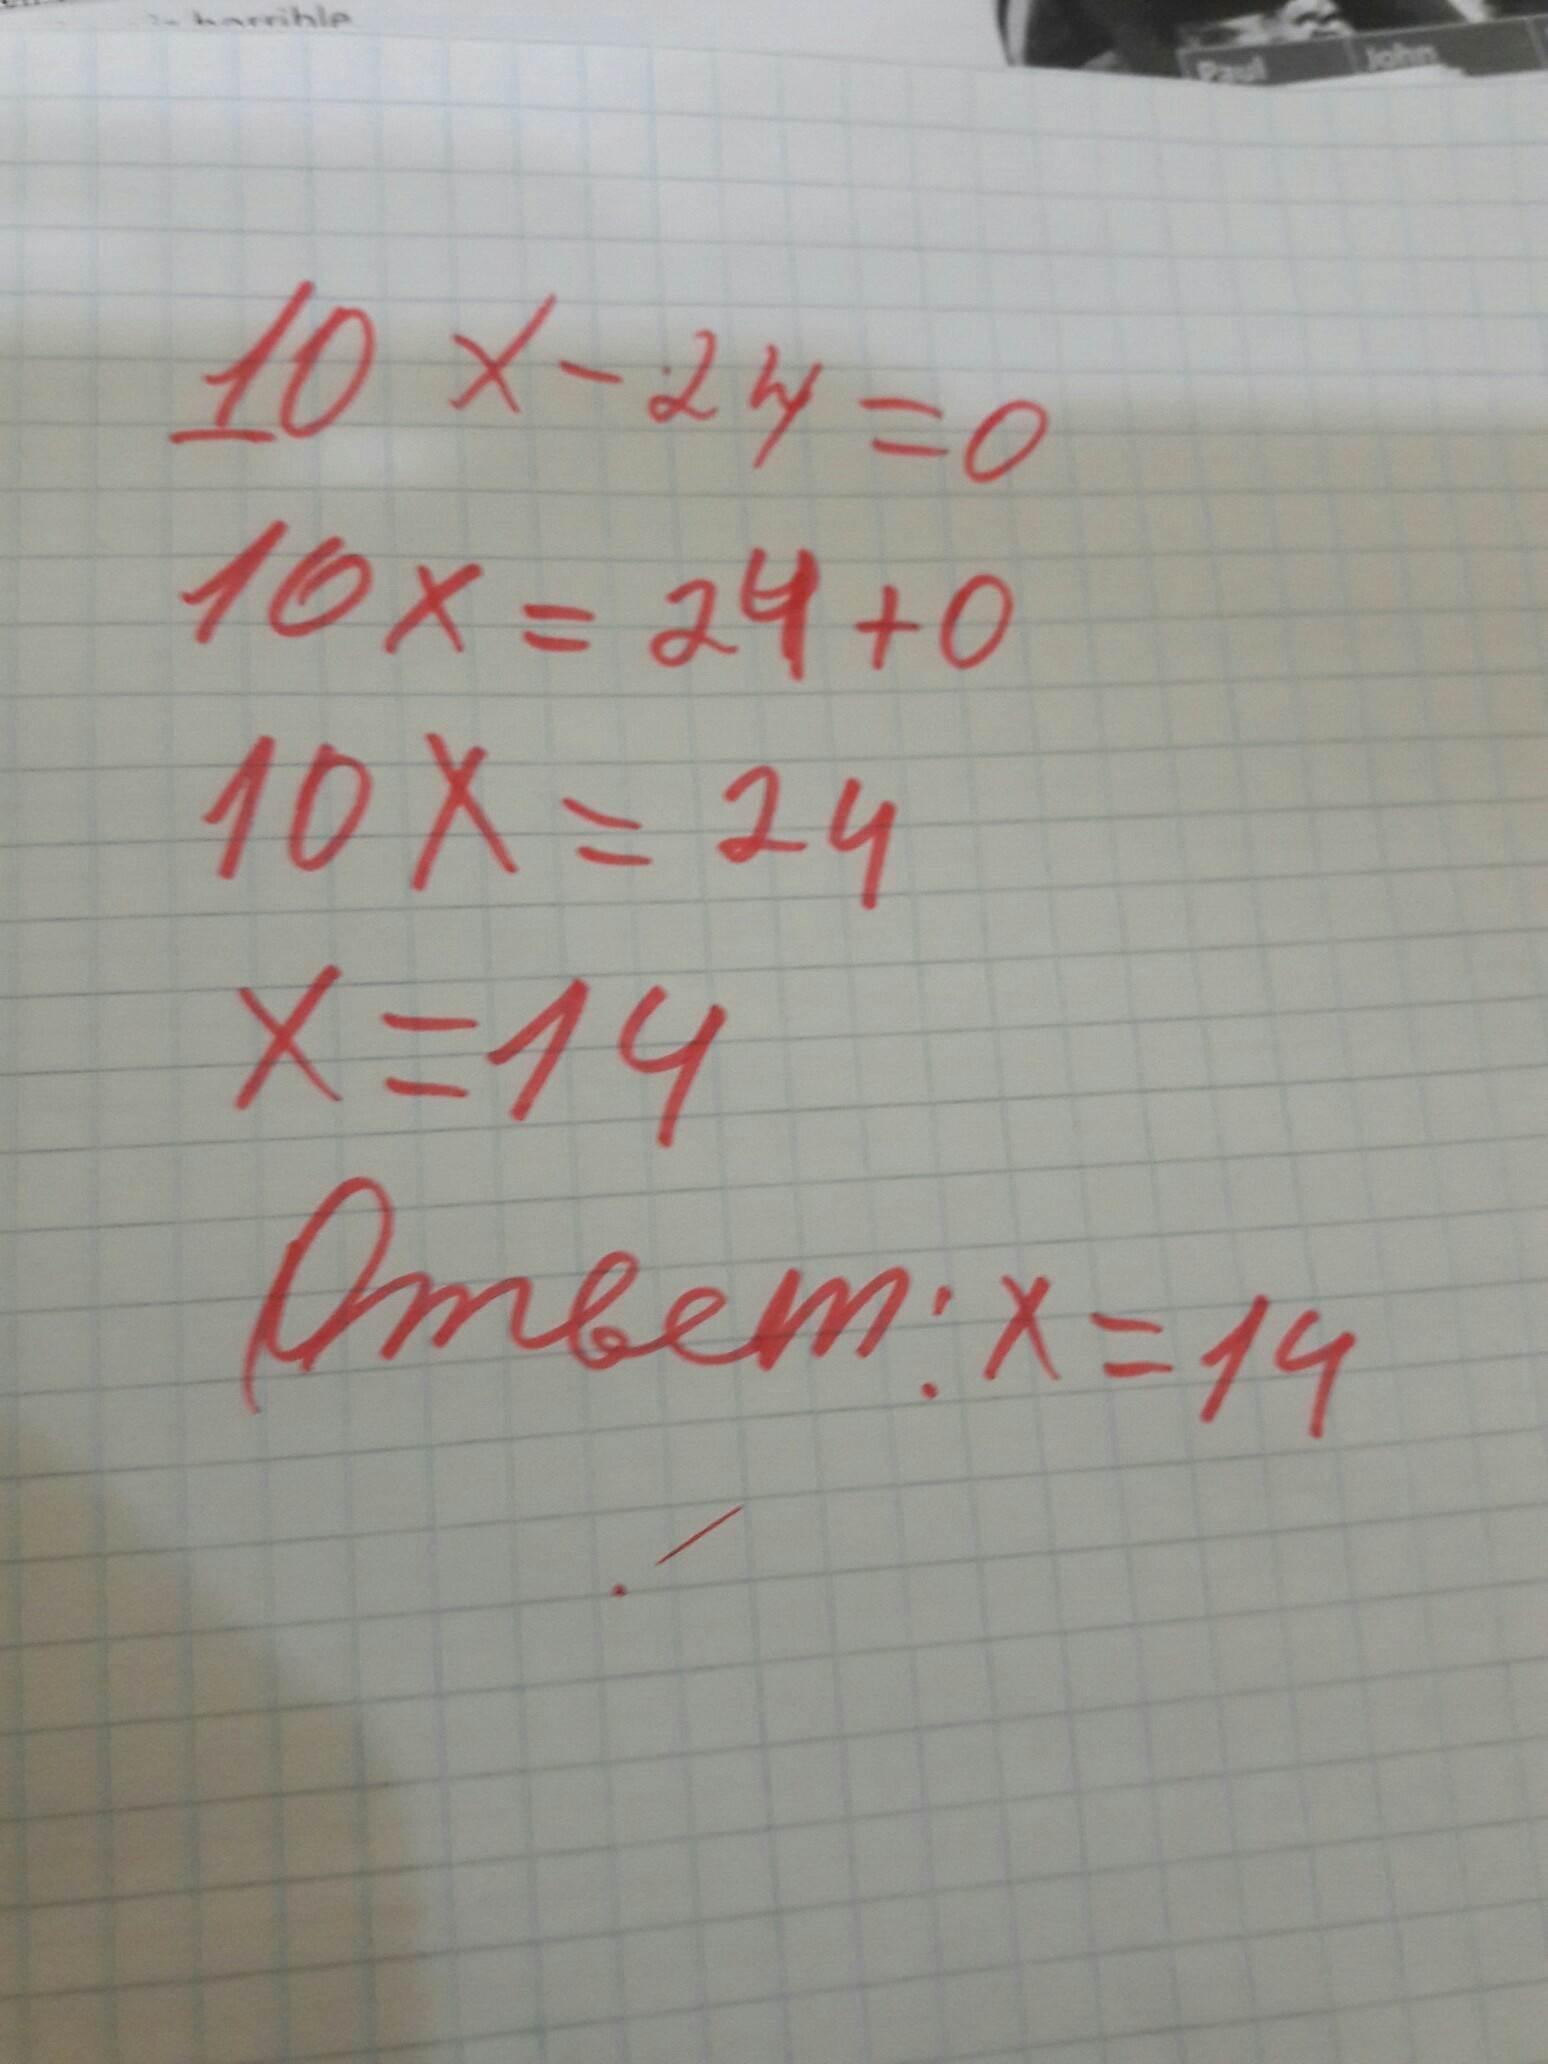 horrible
Paul John
10 x - 24 = 0
10x = 24 + 0
10 X = 24
x = 14
Ответ: x = 14